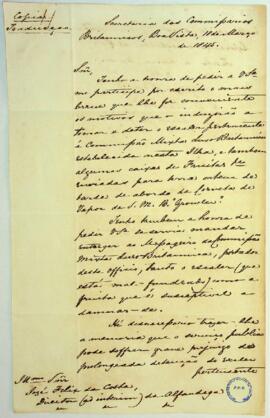 Copia
Traducção
Secretaria dos Commissarios
Britannicos, Boa Vista, 18 de Março
de 1845.
Snr,
Tenho a honra de pedir a VSa
me participe por escrito o mais
breve que lhe for conveniente
os motivos que o
tomar a deter o escaler pertencente
á Commissão Mixta Luso Britannica
estabelecida nesta Ilha, e tambem
algumas caixas de
enviadas para hora
tarde de abordo da Corveta de
Vapor de S. M. B. "Growler".
Tenho tambem a honra de
pedir VSa se sirva mandar
entregar ao Mensageiro da Commissão
Mixta Luso Britannica, portador
deste officio, tanto o escaler (que
está mal fundeado) como a
fruita que é susceptivel a
damnar-se.
Hé desnecessario trazer lhe
a memoria que o serviço publico
pode soffrer grave prejuizo da
prolongada detenção do escaler
pertencente
Illmo Snr
José Felix da Costa,
Director (ad interim) da Alfandega